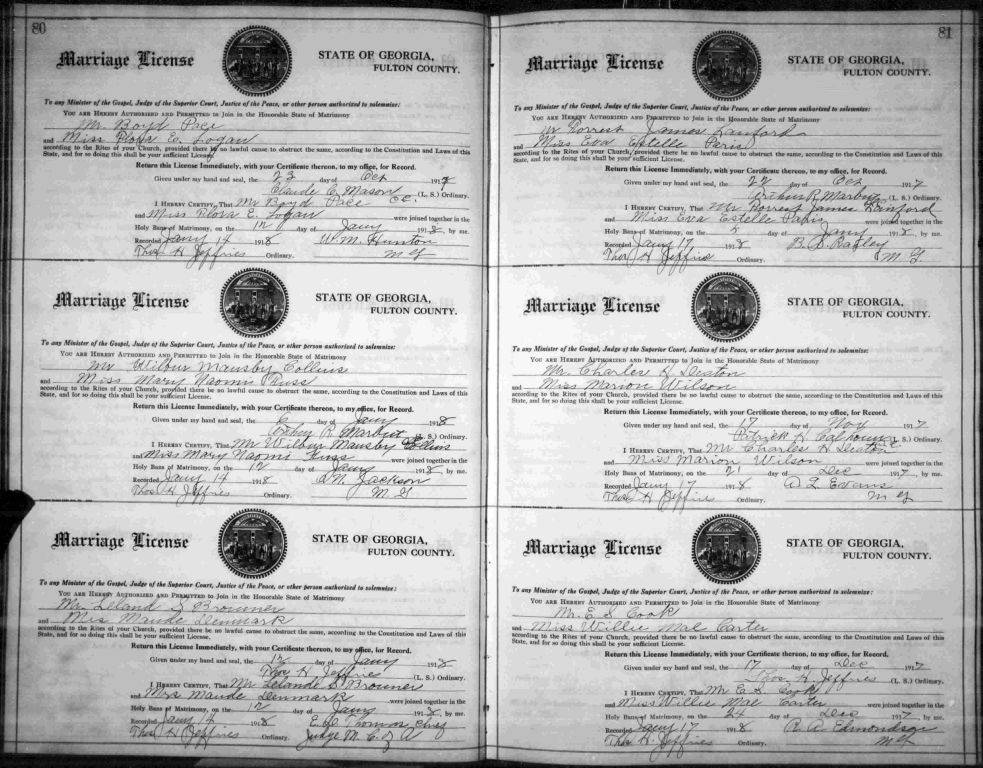 80
Marriage License
STATE OF GEORGIA,
FULTON COUNTY.
To any Minister of the Gospel, Judge of the Superior Court, Justice of the Peace, or other person authorized to solemnize:
YOU ARE HEREBY AUTHORIZED AND PERMITTED to Join in the Honorable State of Matrimony
Mr. Boyd Pace
and Miss Flora E. Logan
according to the Rites of your Church, provided there be no lawful cause to obstruct the same, according to the Constitution and Laws of this
State, and for so doing this shall be your sufficient License.
Return this License Immediately, with your Certificate thereon, to my office, for Record.
Given under my hand and seal, the 23 day of Oct 1917
Claude C. Mason (L. S.) Ordinary.
I HEREBY CERTIFY, That Mr Boyd Pace
and Miss Flora E. Logan were joined together in the
Holy Bans of Matrimony, on the 12 day of Jany 1918, by me.
Recorded Jany 14 1918 W. M. Hunton
Thos H Jeffries Ordinary. M G
Marriage License
STATE OF GEORGIA,
FULTON COUNTY.
To any Minister of the Gospel, Judge of the Superior Court, Justice of the Peace, or other person authorized to solemnize:
YOU ARE HEREBY AUTHORIZED AND PERMITTED to Join in the Honorable State of Matrimony
Mr Wilbur Mausby Collins
and Miss Mary Naomi Huss
according to the Rites of your Church, provided there be no lawful cause to obstruct the same, according to the Constitution and Laws of this
State, and for so doing this shall be your sufficient License.
Return this License Immediately, with your Certificate thereon, to my office, for Record.
Given under my hand and seal, the 6 day of Jany 1918
R. Marbut (L. S.) Ordinary.
I HEREBY CERTIFY, That Mr Wilbur Mausby Collins
and Miss Mary Naomi Huss were joined together in the
Holy Bans of Matrimony, on the 12 day of Jany 1918, by me.
Recorded Jany 14 1918 Jackson
Thos H Jeffries Ordinary. M. G
Marriage License
STATE OF GEORGIA,
FULTON COUNTY.
To any Minister of the Gospel, Judge of the Superior Court, Justice of the Peace, or other person authorized to solemnize:
YOU ARE HEREBY AUTHORIZED AND PERMITTED to Join in the Honorable State of Matrimony
Mr. Leland S Brouner
and Mrs Maude Denmark
according to the Rites of your Church, provided there be no lawful cause to obstruct the same, according to the Constitution and Laws of this
State, and for so doing this shall be your sufficient License.
Return this License Immediately, with your Certificate thereon, to my office, for Record.
Given under my hand and seal, the 12 day of Jany 1918
Thos H Jeffries (L. S.) Ordinary.
I HEREBY CERTIFY, That Mr Leland S Brouner
and Mrs Maude Denmark were joined together in the
Holy Bans of Matrimony, on the 12 day of Jany 1918, by me.
Recorded Jany 14 1918 E. C. Thomas Chief
Thos H Jeffries Ordinary. Judge M. C. of A
81
Marriage License
STATE OF GEORGIA,
FULTON COUNTY.
To any Minister of the Gospel, Judge of the Superior Court, Justice of the Peace, or other person authorized to solemnize:
YOU ARE HEREBY AUTHORIZED AND PERMITTED to Join in the Honorable State of Matrimony
Mr Forrest James Lanford
and Miss Eva Estelle Paris
according to the Rites of your Church, provided there be no lawful cause to obstruct the same, according to the Constitution and Laws of this
State, and for so doing this shall be your sufficient License.
Return this License Immediately, with your Certificate thereon, to my office, for Record.
Given under my hand and seal, the 22 day of Oct 1917
Arthur R Marbut (L. S.) Ordinary.
I HEREBY CERTIFY, That Mr Forrest James Lanford
and Miss Eva Estelle Paris were joined together in the
Holy Bans of Matrimony, on the day of Jany 1918, by me.
Recorded Jany 17 1918 Ragley
Thos H Jeffries Ordinary. M G
Marriage License
STATE OF GEORGIA,
FULTON COUNTY.
To any Minister of the Gospel, Judge of the Superior Court, Justice of the Peace, or other person authorized to solemnize:
YOU ARE HEREBY AUTHORIZED AND PERMITTED to Join in the Honorable State of Matrimony
Mr. Charles H Deaton
and Miss Marion Wilson
according to the Rites of your Church, provided there be no lawful cause to obstruct the same, according to the Constitution and Laws of this
State, and for so doing this shall be your sufficient License.
Return this License Immediately, with your Certificate thereon, to my office, for Record.
Given under my hand and seal, the 17 day of Nov 1917
Patrick H Calhoun (L. S.) Ordinary.
I HEREBY CERTIFY, That Mr Charles H Deaton
and Miss Marion Wilson were joined together in the
Holy Bans of Matrimony, on the 21 day of Dec 1917, by me.
Recorded Jany 17 1918 Evans
Thos H Jeffries Ordinary. M G
Marriage License
STATE OF GEORGIA,
FULTON COUNTY.
To any Minister of the Gospel, Judge of the Superior Court, Justice of the Peace, or other person authorized to solemnize:
YOU ARE HEREBY AUTHORIZED AND PERMITTED to Join in the Honorable State of Matrimony
Mr. E. S. Cook
and Miss Willie Mae Carter
according to the Rites of your Church, provided there be no lawful cause to obstruct the same, according to the Constitution and Laws of this
State, and for so doing this shall be your sufficient License.
Return this License Immediately, with your Certificate thereon, to my office, for Record.
Given under my hand and seal, the 17 day of Dec 1917
Thos. H. Jeffries (L. S.) Ordinary.
I HEREBY CERTIFY, That Mr E. S. Cook
and Miss Willie Mae Carter were joined together in the
Holy Bans of Matrimony, on the 24 day of Dec 1917, by me.
Recorded Jany 17 1918 R. A. Edmondson
Thos H. Jeffries Ordinary. M G